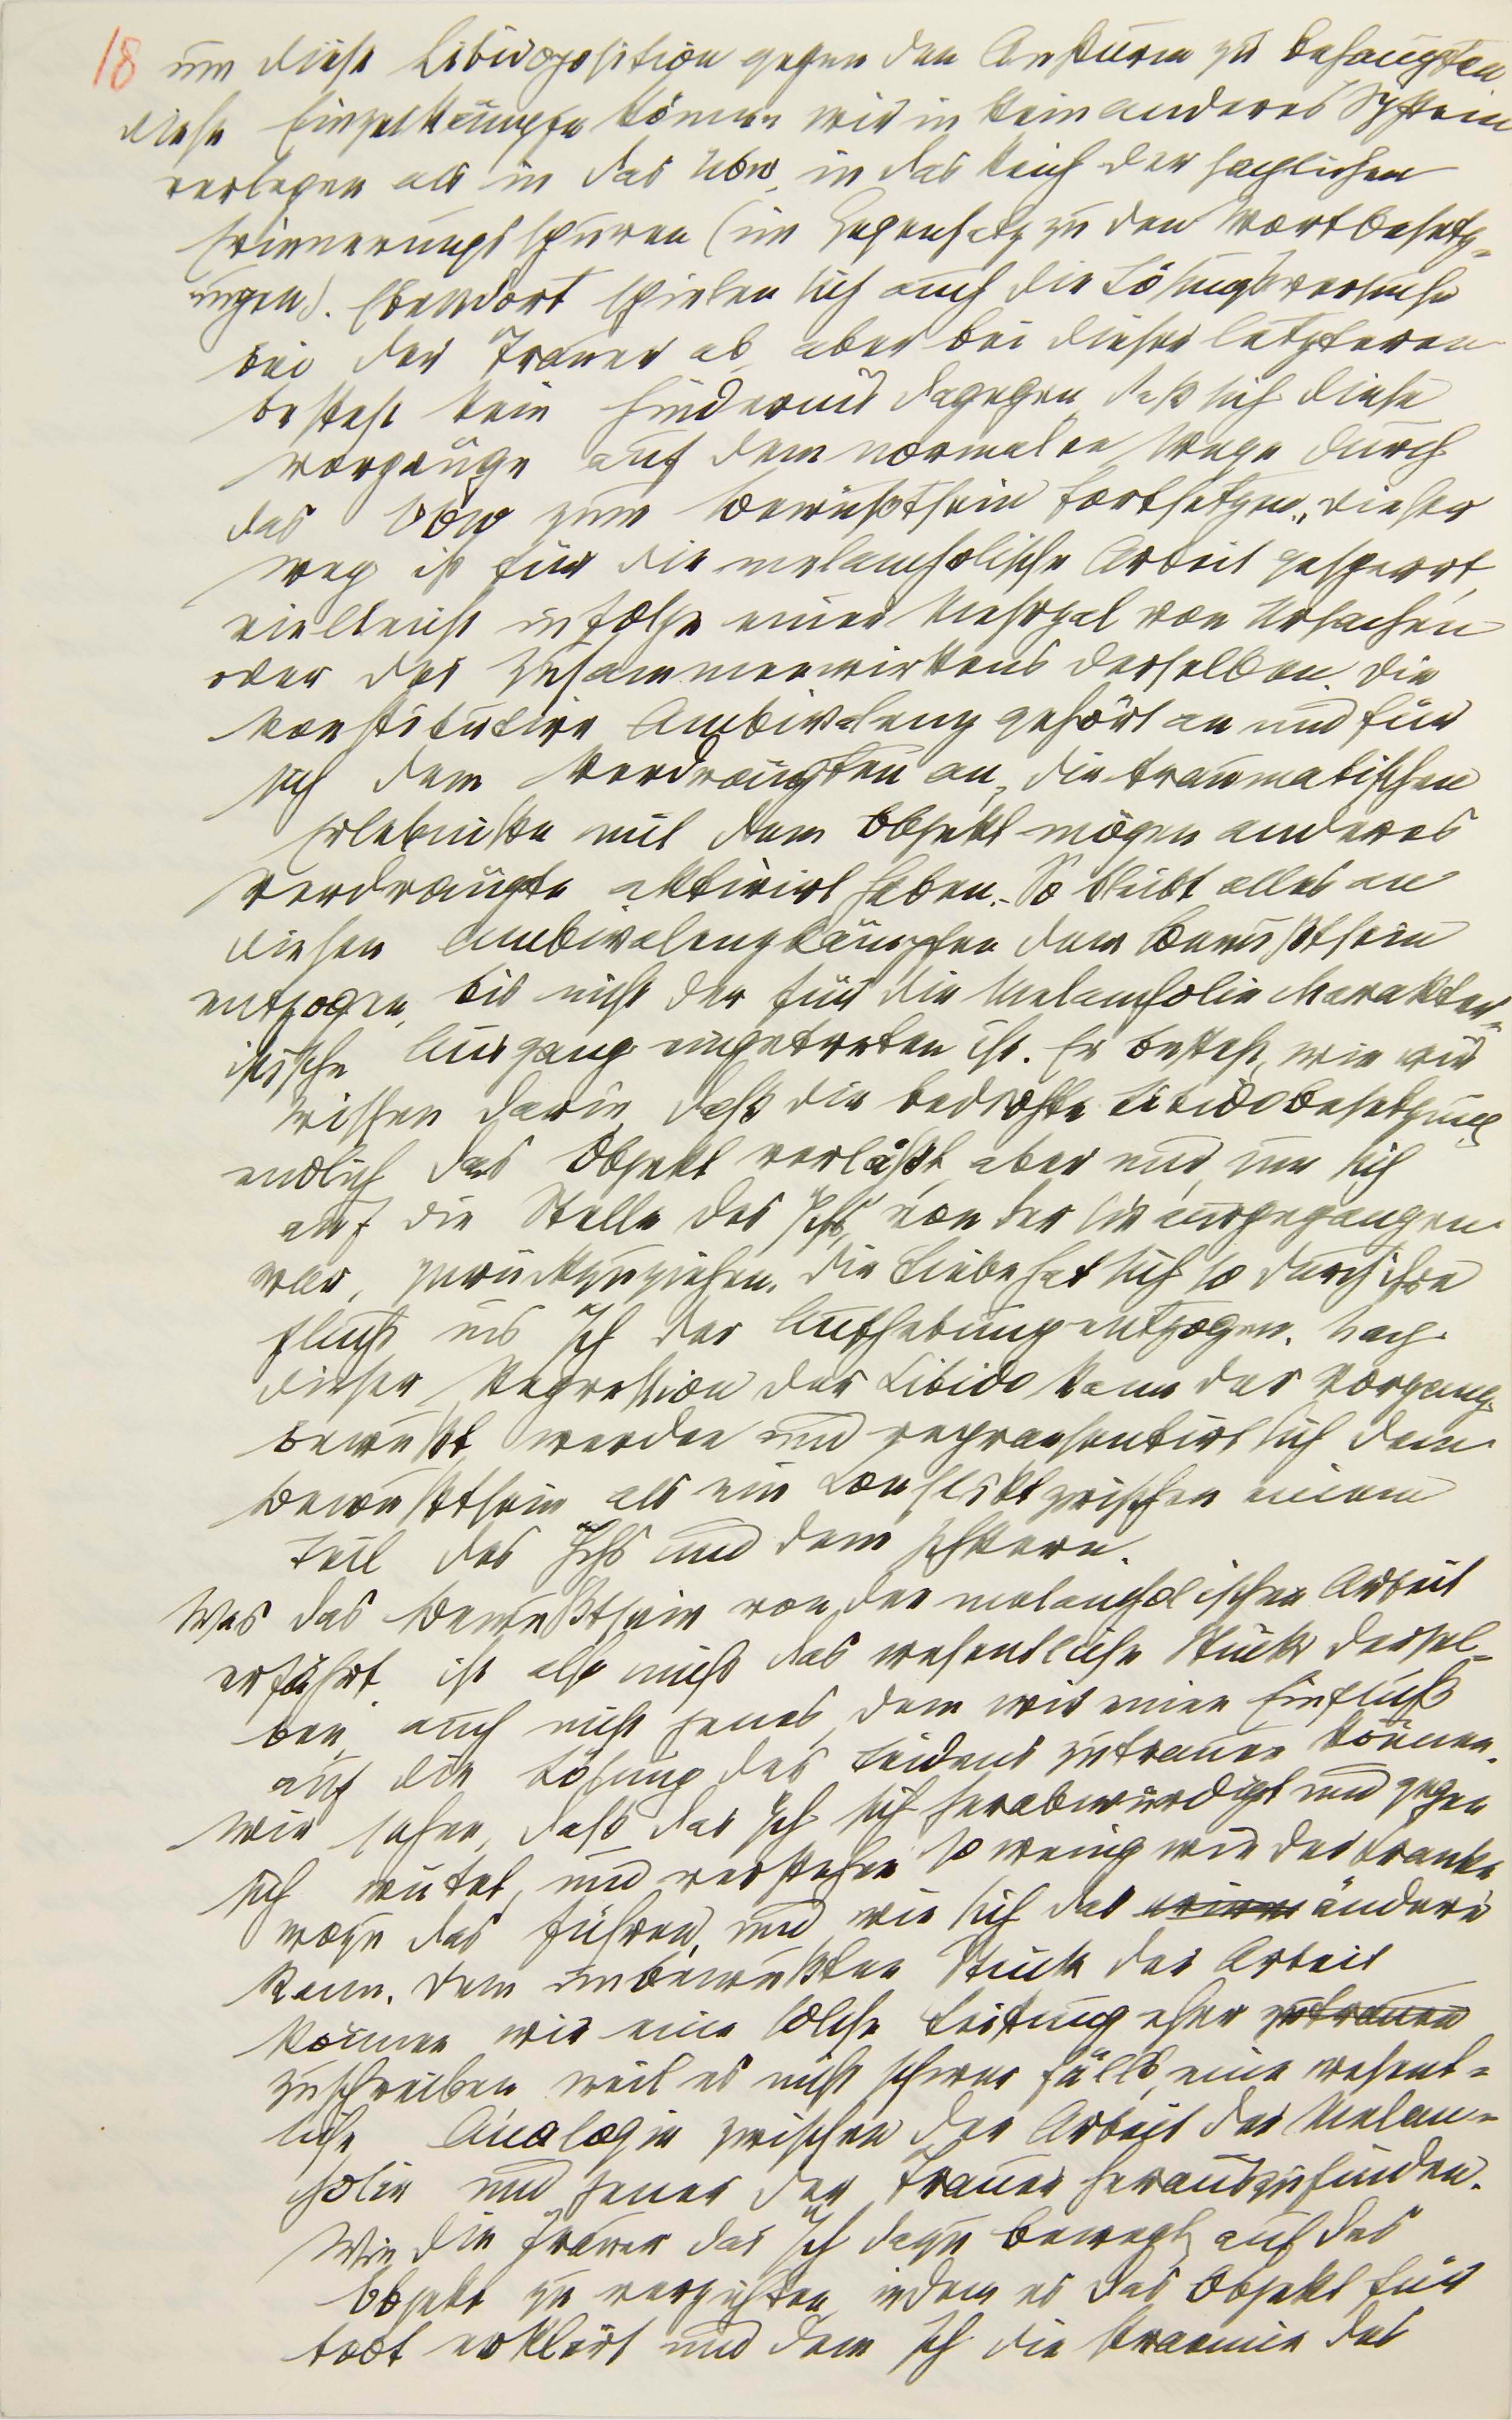 18 um diese Libidoposition gegen den Ansturm zu behaupten.
diese Einzelkämpfe können wir in kein anderes System
verlegen als in das Ubw, in das Reich der sachlichen
Erinnerungsspuren (im Gegensatz zu den Wortbesetz-
ungen). Ebendort spielen sich auch die Lösungsversuche
bei der Trauer ab, aber bei dieser letzteren
besteht kein Hindernis dagegen, daß sich diese
Vorgänge auf dem normalen Wege durch
das Vbw zum Bewußtsein fortsetzen. Dieser
Weg ist für die melancholische Arbeit gesperrt,
vielleicht infolge einer Mehrzal von Ursachen
oder des Zusammenwirkens derselben. Die
konstitutive Ambivalenz gehört an und für
sich dem Verdrängten an, die traumatischen
Erlebnisse mit dem Objekt mögen anderes
Verdrängte aktivirt haben. So bleibt alles an
diesen Ambivalenzkämpfen dem Bewußtsein
entzogen, bis nicht der für die Melancholie charakter-
istische Ausgang eingetreten ist. Er besteht, wie wir
wissen darin, daß die bedrohte Libidobesetzung
endlich das Objekt verläßt, aber nur, um sich
auf die Stelle des Ichs, von der sie ausgegangen
war, zurückzuziehen. Die Liebe hat sich so durch ihre
Flucht ins Ich der Aufhebung entzogen. Nach
dieser Regression der Libido kann der Vorgang
bewußt werden und repraesentirt sich dem
Bewußtsein als ein Conflikt zwischen einem
Teil des Ichs und dem
Was das Bewußtsein von der melancholischen Arbeit
erfährt, ist also nicht das wesentliche Stück dersel-
ben, auch nicht jenes, dem wir einen Einfluß
auf die Lösung des Leidens zutrauen können.
Wir sehen, daß das Ich sich herabwürdigt und gegen
sich wütet, und verstehen so wenig wie der Kranke
wozu das führen, und wie sich das ändern
kann. Dem unbewußten Stück der Arbeit
können wir eine solche Leistung eher zutrauen
zuschreiben weil es nicht schwer fällt, eine wesent-
liche Analogie zwischen der Arbeit der Melan-
cholie und jener der Trauer herauszufinden.
Wie die Trauer das Ich dazu bewegt, auf das
Objekt zu verzichten, indem es das Objekt für
todt erklärt und dem Ich die Praemie des